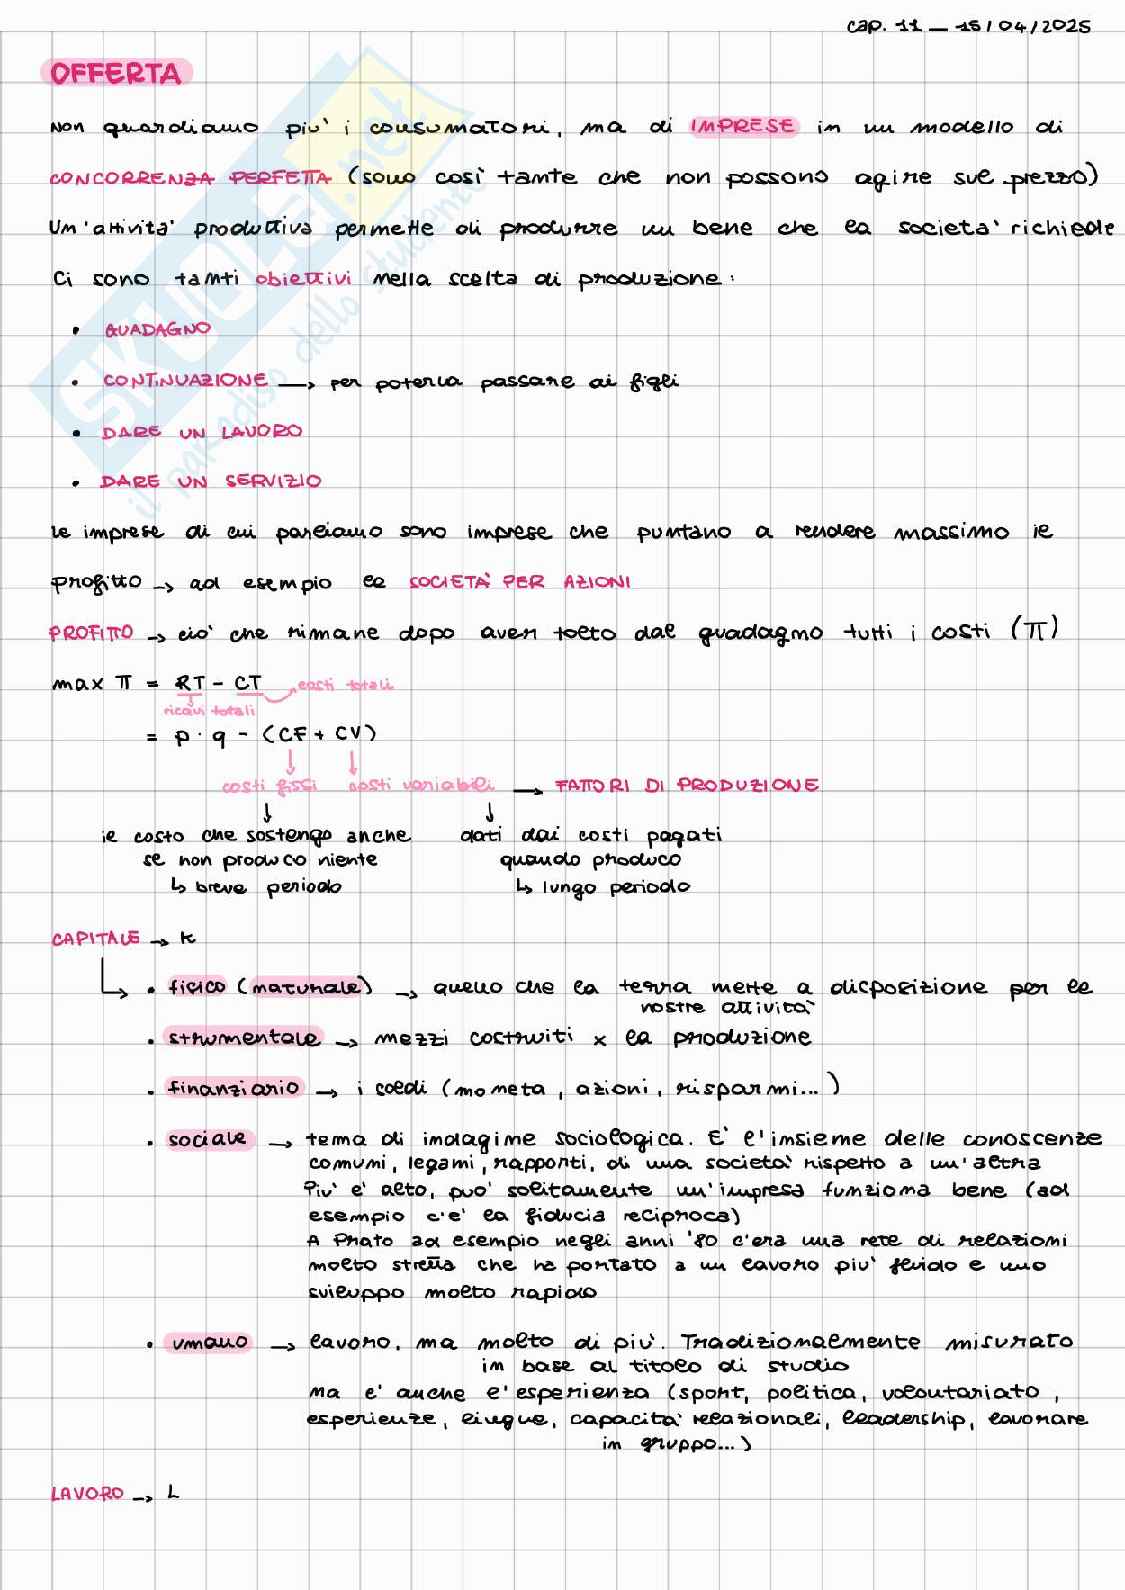 cap. 11 — 15/04/2025
OFFERTA
Non guardiamo più i consumatori, ma di IMPRESE in un modello di
CONCORRENZA PERFETTA (sono così tante che non possono agire sul prezzo)
Un'attività produttiva permette di produrre un bene che la società richiede
Ci sono tanti obiettivi nella scelta di produzione:
• GUADAGNO
• CONTINUAZIONE → per poterla passare ai figli
• DARE UN LAVORO
• DARE UN SERVIZIO
le imprese di cui parliamo sono imprese che puntano a rendere massimo il
profitto → ad esempio le SOCIETÀ PER AZIONI
PROFITTO → ciò che rimane dopo aver tolto dal guadagno tutti i costi (π)
max π = RT - CT costi totali
ricavi totali
= p · q - (CF + CV)
costi fissi costi variabili → FATTORI DI PRODUZIONE
il costo che sostengo anche dati dai costi pagati
se non produco niente quando produco
↳ breve periodo ↳ lungo periodo
CAPITALE → K
• fisico (naturale) → quello che la terra mette a disposizione per le
nostre attività
• strumentale → mezzi costruiti x la produzione
• finanziario → i soldi (moneta, azioni, risparmi...)
• sociale → tema di indagine sociologica. E' l'insieme delle conoscenze
comuni, legami, rapporti, di una società rispetto a un'altra
Più è alto, può solitamente un'impresa funziona bene (ad
esempio c'è la fiducia reciproca)
A Prato ad esempio negli anni '80 c'era una rete di relazioni
molto stretta che ha portato a un lavoro più fluido e uno
sviluppo molto rapido
• umano → lavoro, ma molto di più. Tradizionalmente misurato
in base al titolo di studio
ma è anche l'esperienza (sport, politica, volontariato,
esperienze, lingue, capacità relazionali, leadership, lavorare
in gruppo...)
LAVORO → L
SKUOLA.net
il paradiso dello studente